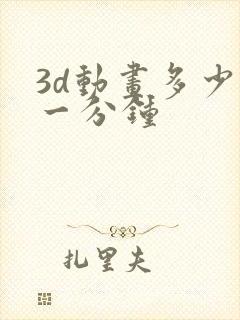 3d動畫多少
一分鐘
扎里夫